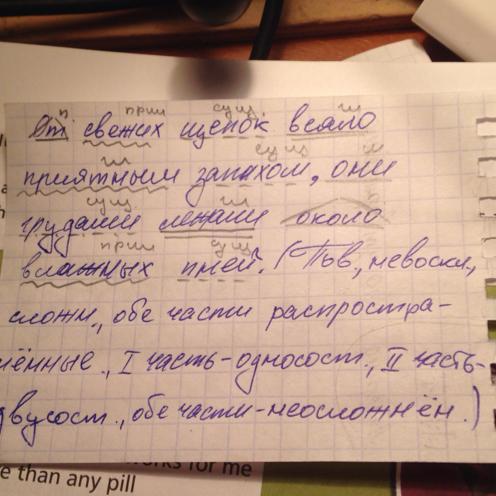 п прил сущ гл
От свежих щепок веяло
гл сущ м
приятным запахом, они
сущ гл п
грудами лежали около
прил сущ
влажных пней. (Пов, невоскл,
сложн., обе части распростра-
нённые., I часть-односост., II часть-
двусост., обе части-неосложнён.)
works for me
re than any pill